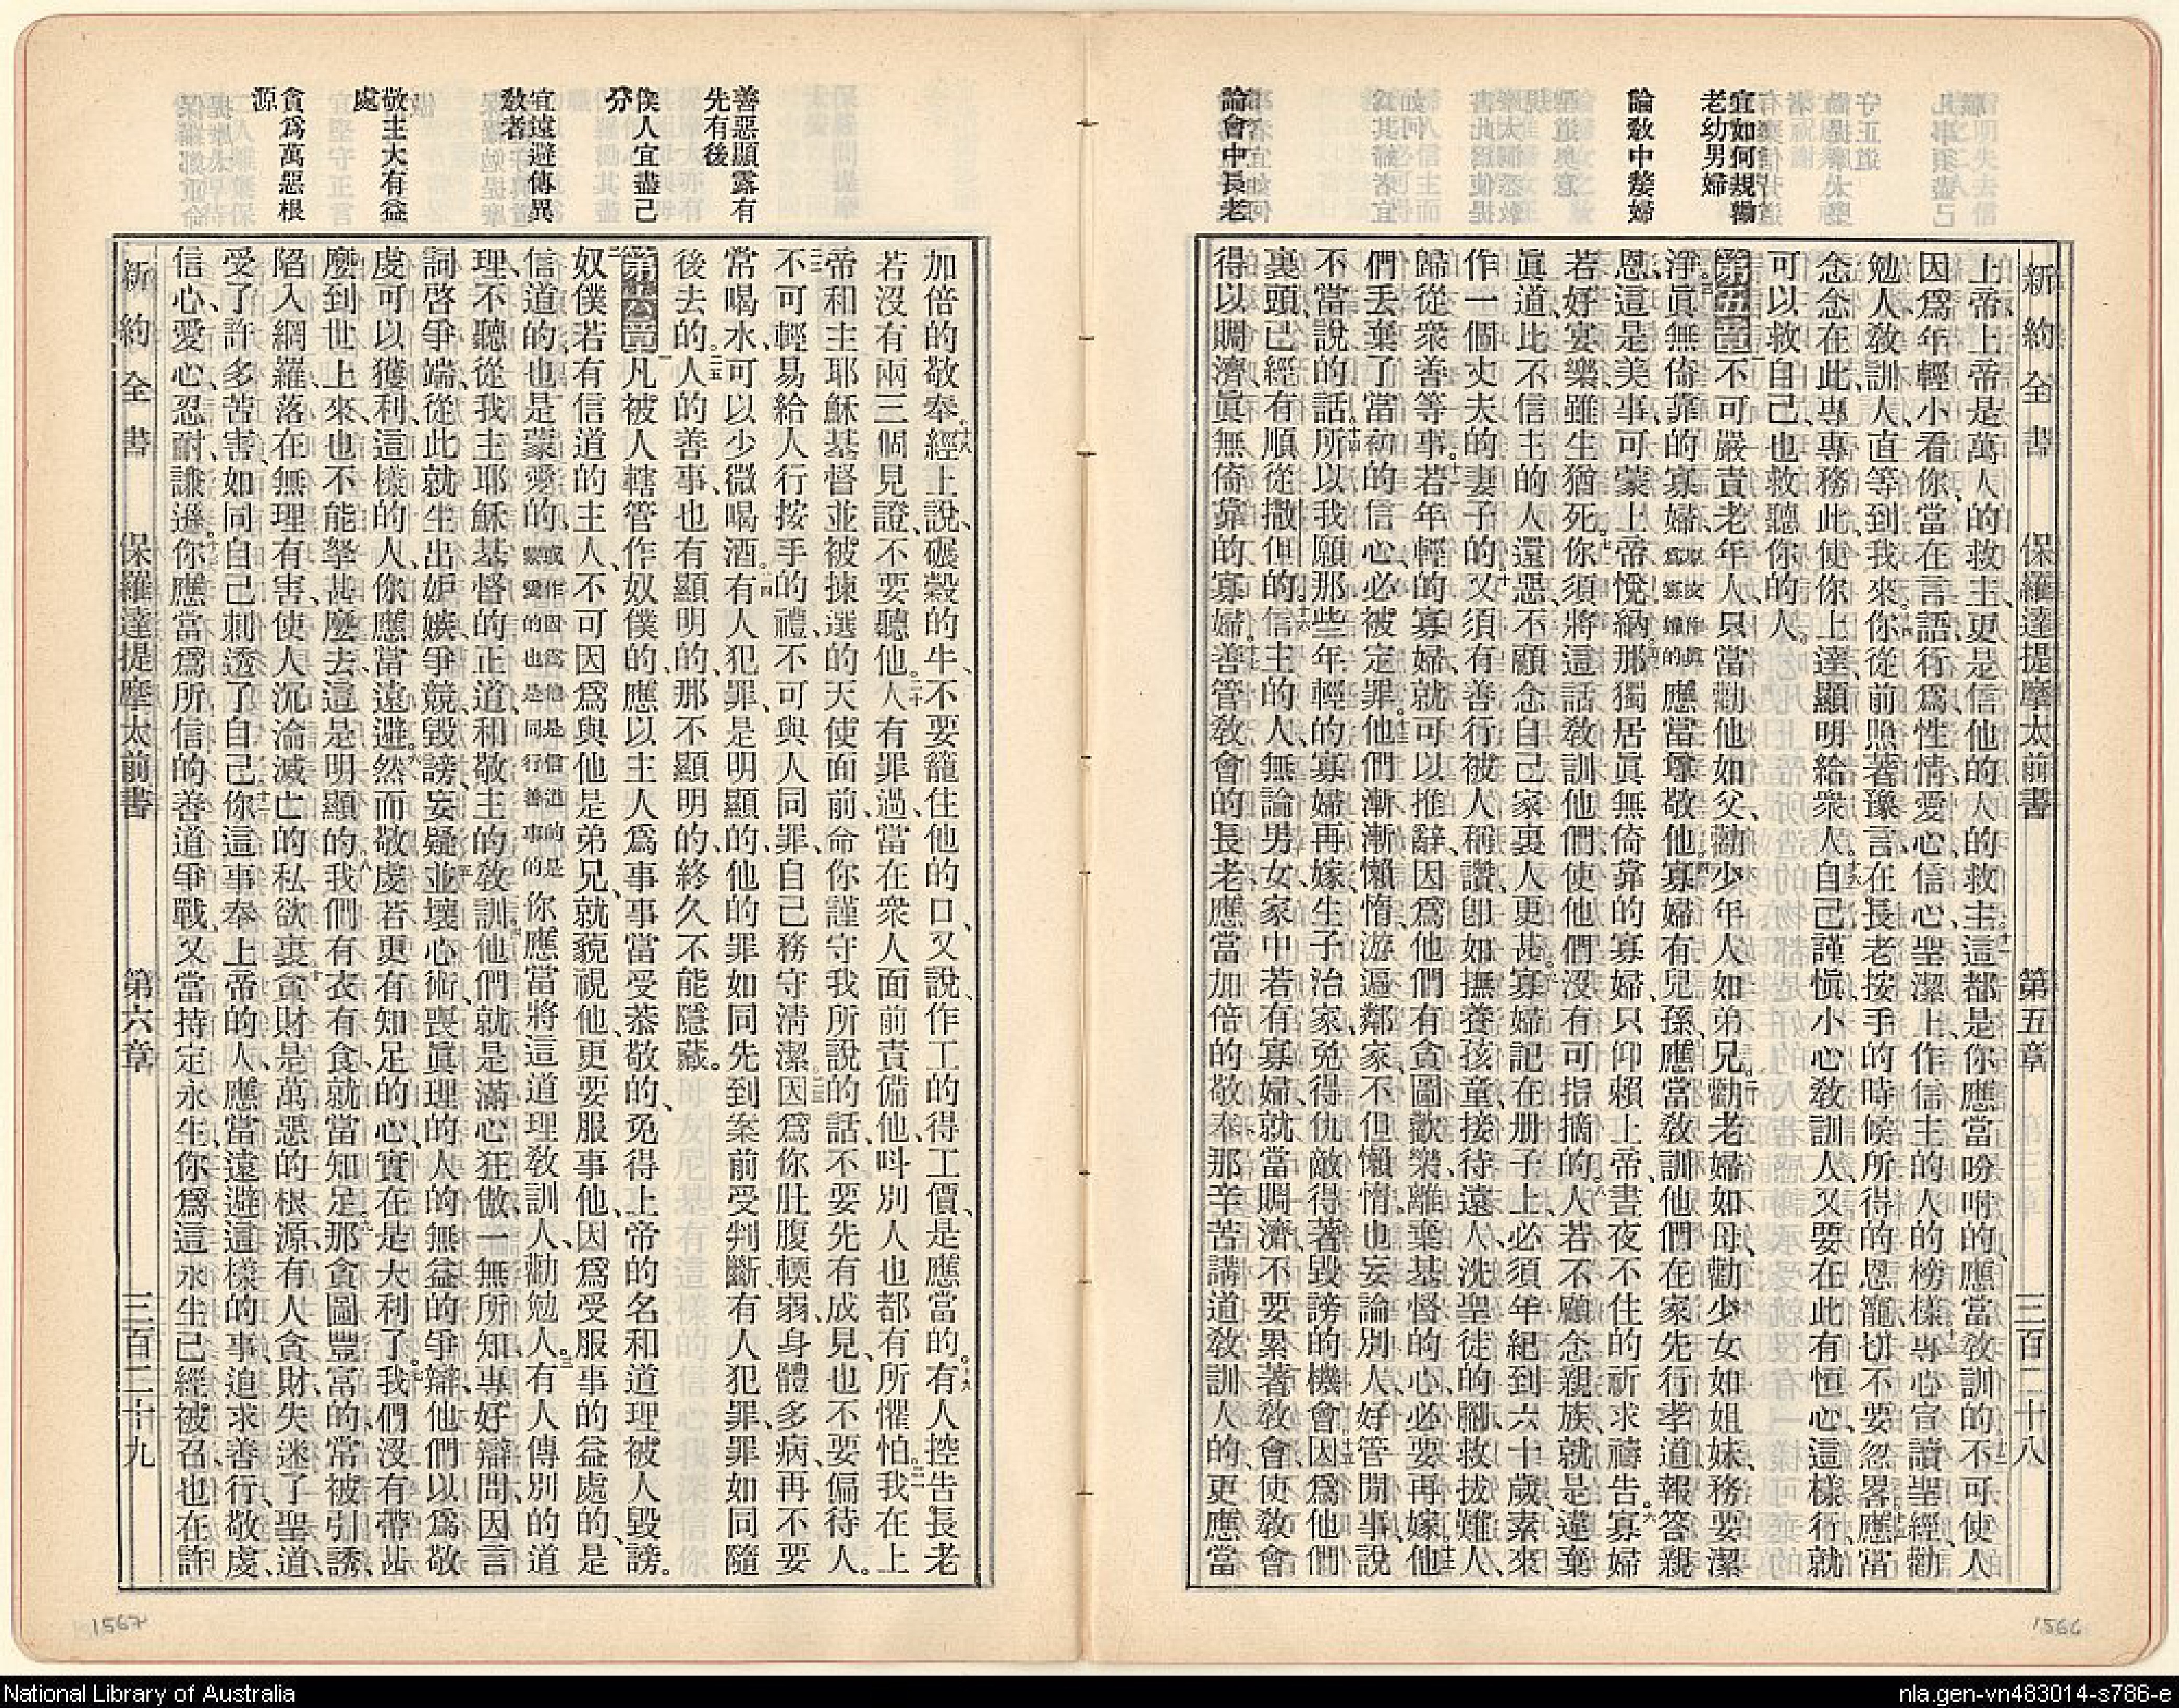 宜如何規勸
老幼男婦
論教中嫠婦
論會中長老
新約全書 保羅達提摩太前書 第五章 三百二十八
上帝上帝是萬人的救主、更是信他的人的救主。十一這都是你應當吩咐的、應當教訓的、十二不可使人
因爲年輕小看你、當在言語、行爲、性情、愛心、信心、聖潔上、作信主的人的榜樣、十三專心宣讀聖經、勸
勉人、教訓人、直等到我來。十四你從前照著豫言、在長老按手的時候、所得的恩寵、切不要忽畧。十五應當
念念在此、專專務此、使你上達顯明給衆人。十六自己謹愼、小心教訓人、又要在此有恒心、這樣行、就
可以救自己、也救聽你的人。
第五章 一不可嚴責老年人、只當勸他如父、勸少年人如弟兄、二勸老婦如母、勸少女如姐妹、務要潔
淨。三眞無倚靠的寡婦、應當尊敬他。四寡婦有兒孫、應當教訓他們在家先行孝道、報答親
恩、這是美事、可蒙上帝悅納。五那獨居眞無倚靠的寡婦、只仰賴上帝、晝夜不住的祈求禱告。六寡婦
若好宴樂、雖生猶死。七你須將這話教訓他們、使他們沒有可指摘的。八人若不顧念親族、就是違棄
眞道、比不信主的人還惡、不顧念自己家裏人更甚。九寡婦記在册子上、必須年紀到六十歲、素來
作一個丈夫的妻子的、十又須有善行被人稱讚、卽如撫養孩童、接待遠人、洗聖徒的脚、救拔難人、
歸從衆善等事。十一若年輕的寡婦、就可以推辭、因爲他們有貪圖歡樂、離棄基督的心、必要再嫁、十二他
們丢棄了當初的信心、必被定罪。十三他們漸漸懶惰、游遍鄰家、不但懶惰、也妄論別人、好管閒事、說
不當說的話。十四所以我願那些年輕的寡婦再嫁、生子治家、免得仇敵得著毀謗的機會、十五因爲他們
裏頭、已經有順從撒但的。十六信主的人、無論男女、家中若有寡婦、就當賙濟、不要累著教會、使教會
得以賙濟眞無倚靠的寡婦。十七善管教會的長老、應當加倍的敬奉、那辛苦講道教訓人的、更應當
善惡顯露有
先有後
僕人宜盡己
分
宜遠避傳異
教者
敬主大有益
處
貪爲萬惡根
源
加倍的敬奉。十八經上說、碾穀的牛、不要籠住他的口、又說、作工的得工價、是應當的。十九有人控告長老、
若沒有兩三個見證、不要聽他。二十人有罪過、當在衆人面前責備他、呌別人也都有所懼怕。二一我在上
帝和主耶穌基督並被揀選的天使面前、命你謹守我所說的話、不要先有成見、也不要偏待人。
二二不可輕易給人行按手的禮、不可與人同罪、自己務守淸潔。二三因爲你肚腹輭弱、身體多病、再不要
常喝水、可以少微喝酒。二四有人犯罪、是明顯的、他的罪如同先到案前受判斷、有人犯罪、罪如同隨
後去的。二五人的善事、也有顯明的、那不顯明的、終久不能隱藏。
第六章 一凡被人轄管作奴僕的、應以主人爲事事當受恭敬的、免得上帝的名和道理被人毀謗。
二奴僕若有信道的主人、不可因爲與他是弟兄、就藐視他、更要服事他、因爲受服事的益處的、是
信道的、也是蒙愛的、或作因爲他是信道的是蒙愛的也是同行善事的 你應當將這道理教訓人、勸勉人。三有人傳別的道
理、不聽從我主耶穌基督的正道、和敬主的教訓。四他們就是滿心狂傲、一無所知、專好辯問、因言
詞啓爭端、從此就生出妒嫉、爭競、毀謗、妄疑、五並壞心術、喪眞理的人的無益的爭辯、他們以爲敬
虔可以獲利、這樣的人、你應當遠避。六然而敬虔、若更有知足的心、實在是大利了。七我們沒有帶甚
麼到世上來、也不能拏甚麼去、這是明顯的、八我們有衣有食、就當知足、九那貪圖豐富的、常被引誘、
陷入網羅、落在無理有害、使人沉淪滅亡的私欲裏。十貪財是萬惡的根源、有人貪財、失迷了聖道、
受了許多苦害、如同自己刺透了自己。十一你這事奉上帝的人、應當遠避這樣的事、追求善行、敬虔、
信心、愛心、忍耐、謙遜。十二你應當爲所信的善道爭戰、又當持定永生、你爲這永生已經被召、也在許
新約全書 保羅達提摩太前書 第六章 三百二十九
1567
1566
National Library of Australia
nla.gen-vn483014-s786-e